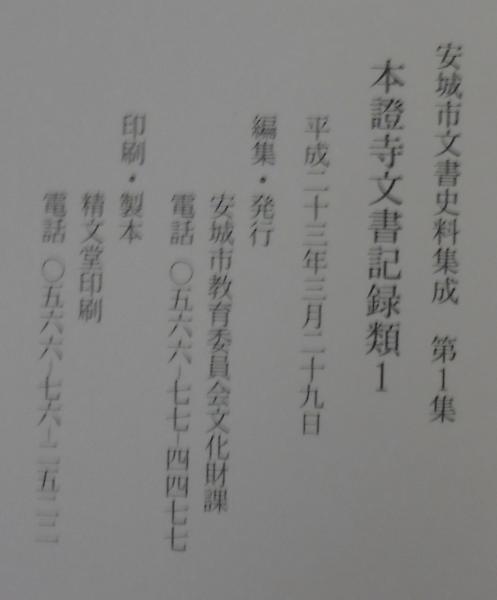 安城市文書史料集成　第1集
本證寺文書記録類1
平成二十三年三月二十九日
編集・発行
安城市教育委員会文化財課
電話　〇五六六―七七―四四七七
印刷・製本
精文堂印刷
電話　〇五六六―七六―二五二二